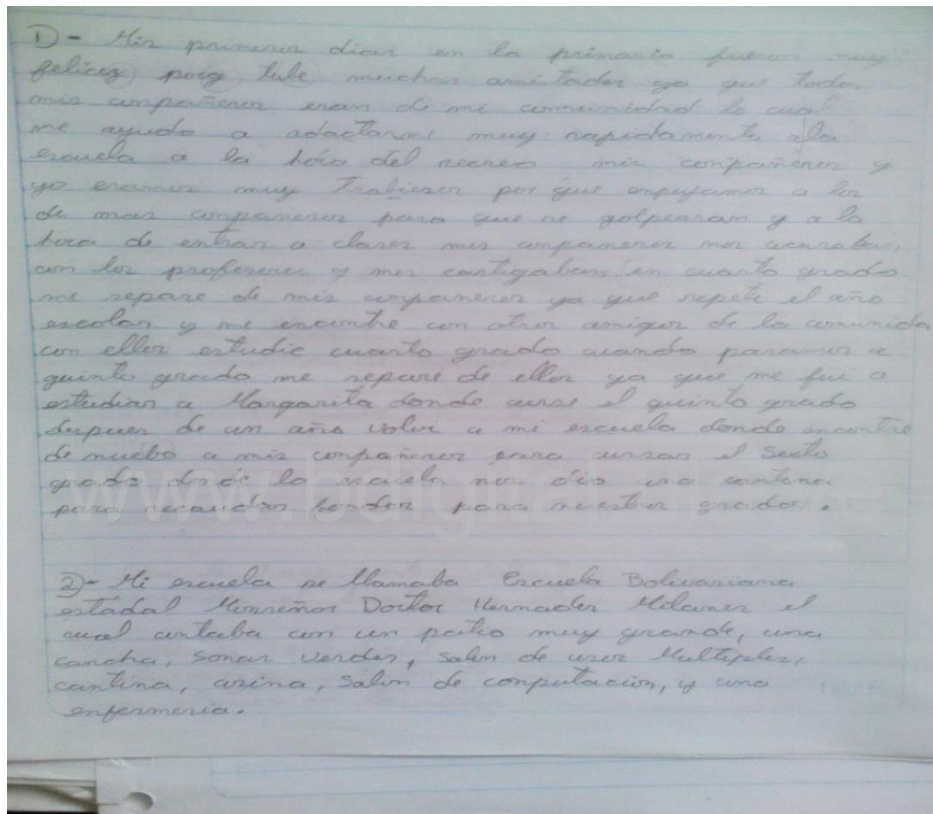 1)- Mis primeros dias en la primaria fueron muy
felices pois tube muchas amistades ya que todos
mis conpañeros eran de mi comunidad lo cual
me ayudo a adactarme muy rapidamente ala
escuela a la hora del recreo mis conpañeros y
yo eramos muy trabiesos por que enpujamos a los
de mas conpaneros para que se golpearan y a la
hora de entrar a clases mis conpaneros nos acusaban
con los profesores y nos castigaban en cuarto grado
me separe de mis conpaneros ya que repeti el año
escolar y me encontre con otros amigos de la comunidad
con ellos estudie cuarto grado cuando pasamos a
quinto grado me separe de ellos ya que me fui a
estudiar a Margarita donde curse el quinto grado
despues de un año volvi a mi escuela donde encontre
de nuebo a mis conpañeros para cursar el Sexto
grado donde la escuela nos dio una cantina
para recaudar fondos para nuestros grados.
2)- Mi escuela se llamaba Escuela Bolivariana
estadal Doctor Milanes el
cual contaba con un patio muy grande, una
cancha, sonas verdes, salon de usos Multiples,
cantina, cosina, Salon de conputacion, y una
enfermeria.